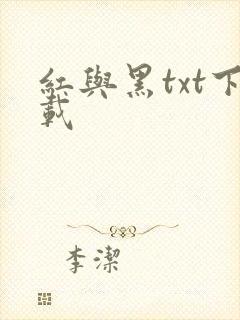 紅與黑txt下
載
李潔